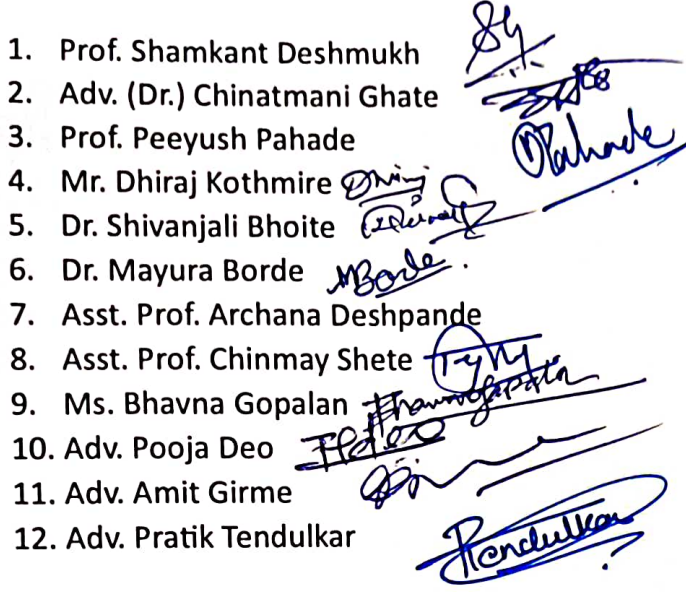 1. Prof. Shamkant Deshmukh
2. Adv. (Dr.) Chinatmani Ghate
3. Prof. Peeyush Pahade Pahade
4. Mr. Dhiraj Kothmire Dhiraj
5. Dr. Shivanjali Bhoite
6. Dr. Mayura Borde MBorde.
7. Asst. Prof. Archana Deshpande
8. Asst. Prof. Chinmay Shete
9. Ms. Bhavna Gopalan
10. Adv. Pooja Deo
11. Adv. Amit Girme
12. Adv. Pratik Tendulkar PTendulkar